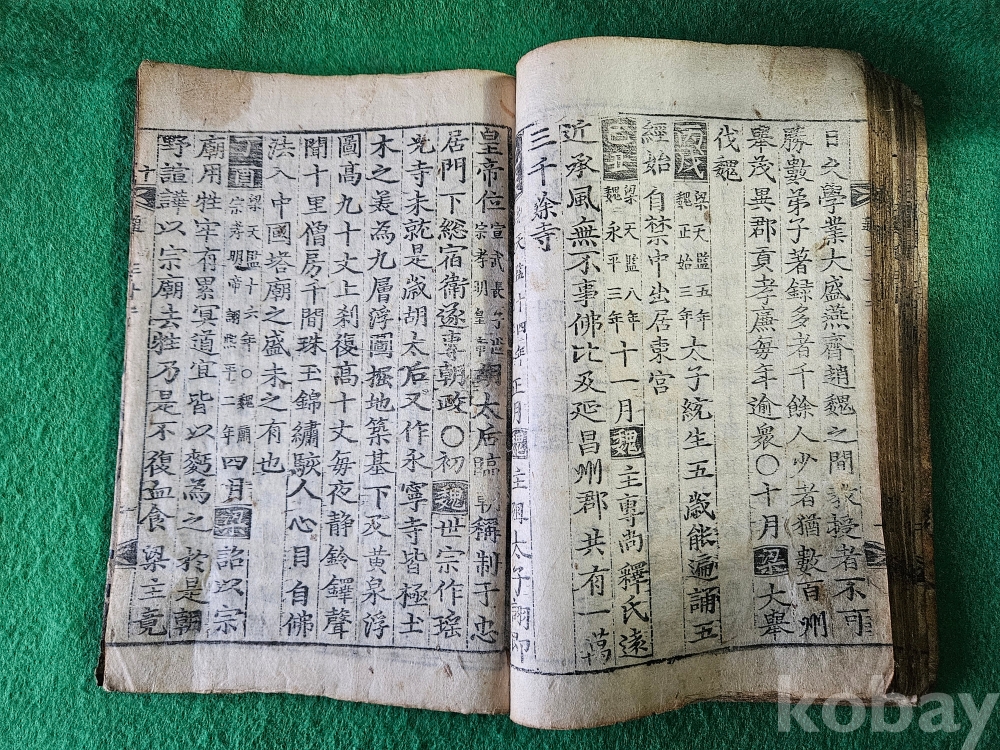 日之學業大盛燕齊趙魏之間教授者不可
勝數弟子著錄多者千餘人少者猶數百州
舉茂異郡貢孝廉每年逾衆〇十月梁大舉
伐魏
丙戌梁天監五年魏正始三年太子統生五歲能遍誦五
經始自禁中出居東宮
己丑梁天監八年魏永平二年十一月魏主專尚釋氏遠
近承風無不事佛比及延昌州郡共有一萬
三千餘寺
十四年正月魏主殂太子詡即
皇帝位宗孝明皇帝胡太后臨朝稱制于忠
居門下總宿衛遂專朝政〇初魏世宗作瑤
光寺未就是歲胡太后又作永寧寺皆極土
木之美為九層浮圖掘地築基下及黃泉浮
圖高九十丈上刹復高十丈每夜静鈴鐸聲
聞十里僧房千間珠玉錦繡駭人心目自佛
法入中國塔廟之盛未之有也
丁酉梁天監十六年〇魏肅宗孝明帝詡熙平二年四月梁詔以宗
廟用牲牢有累冥道宜皆以麪為之於是朝
野諠譁以宗廟去牲乃是不復血食梁主竟
kobay